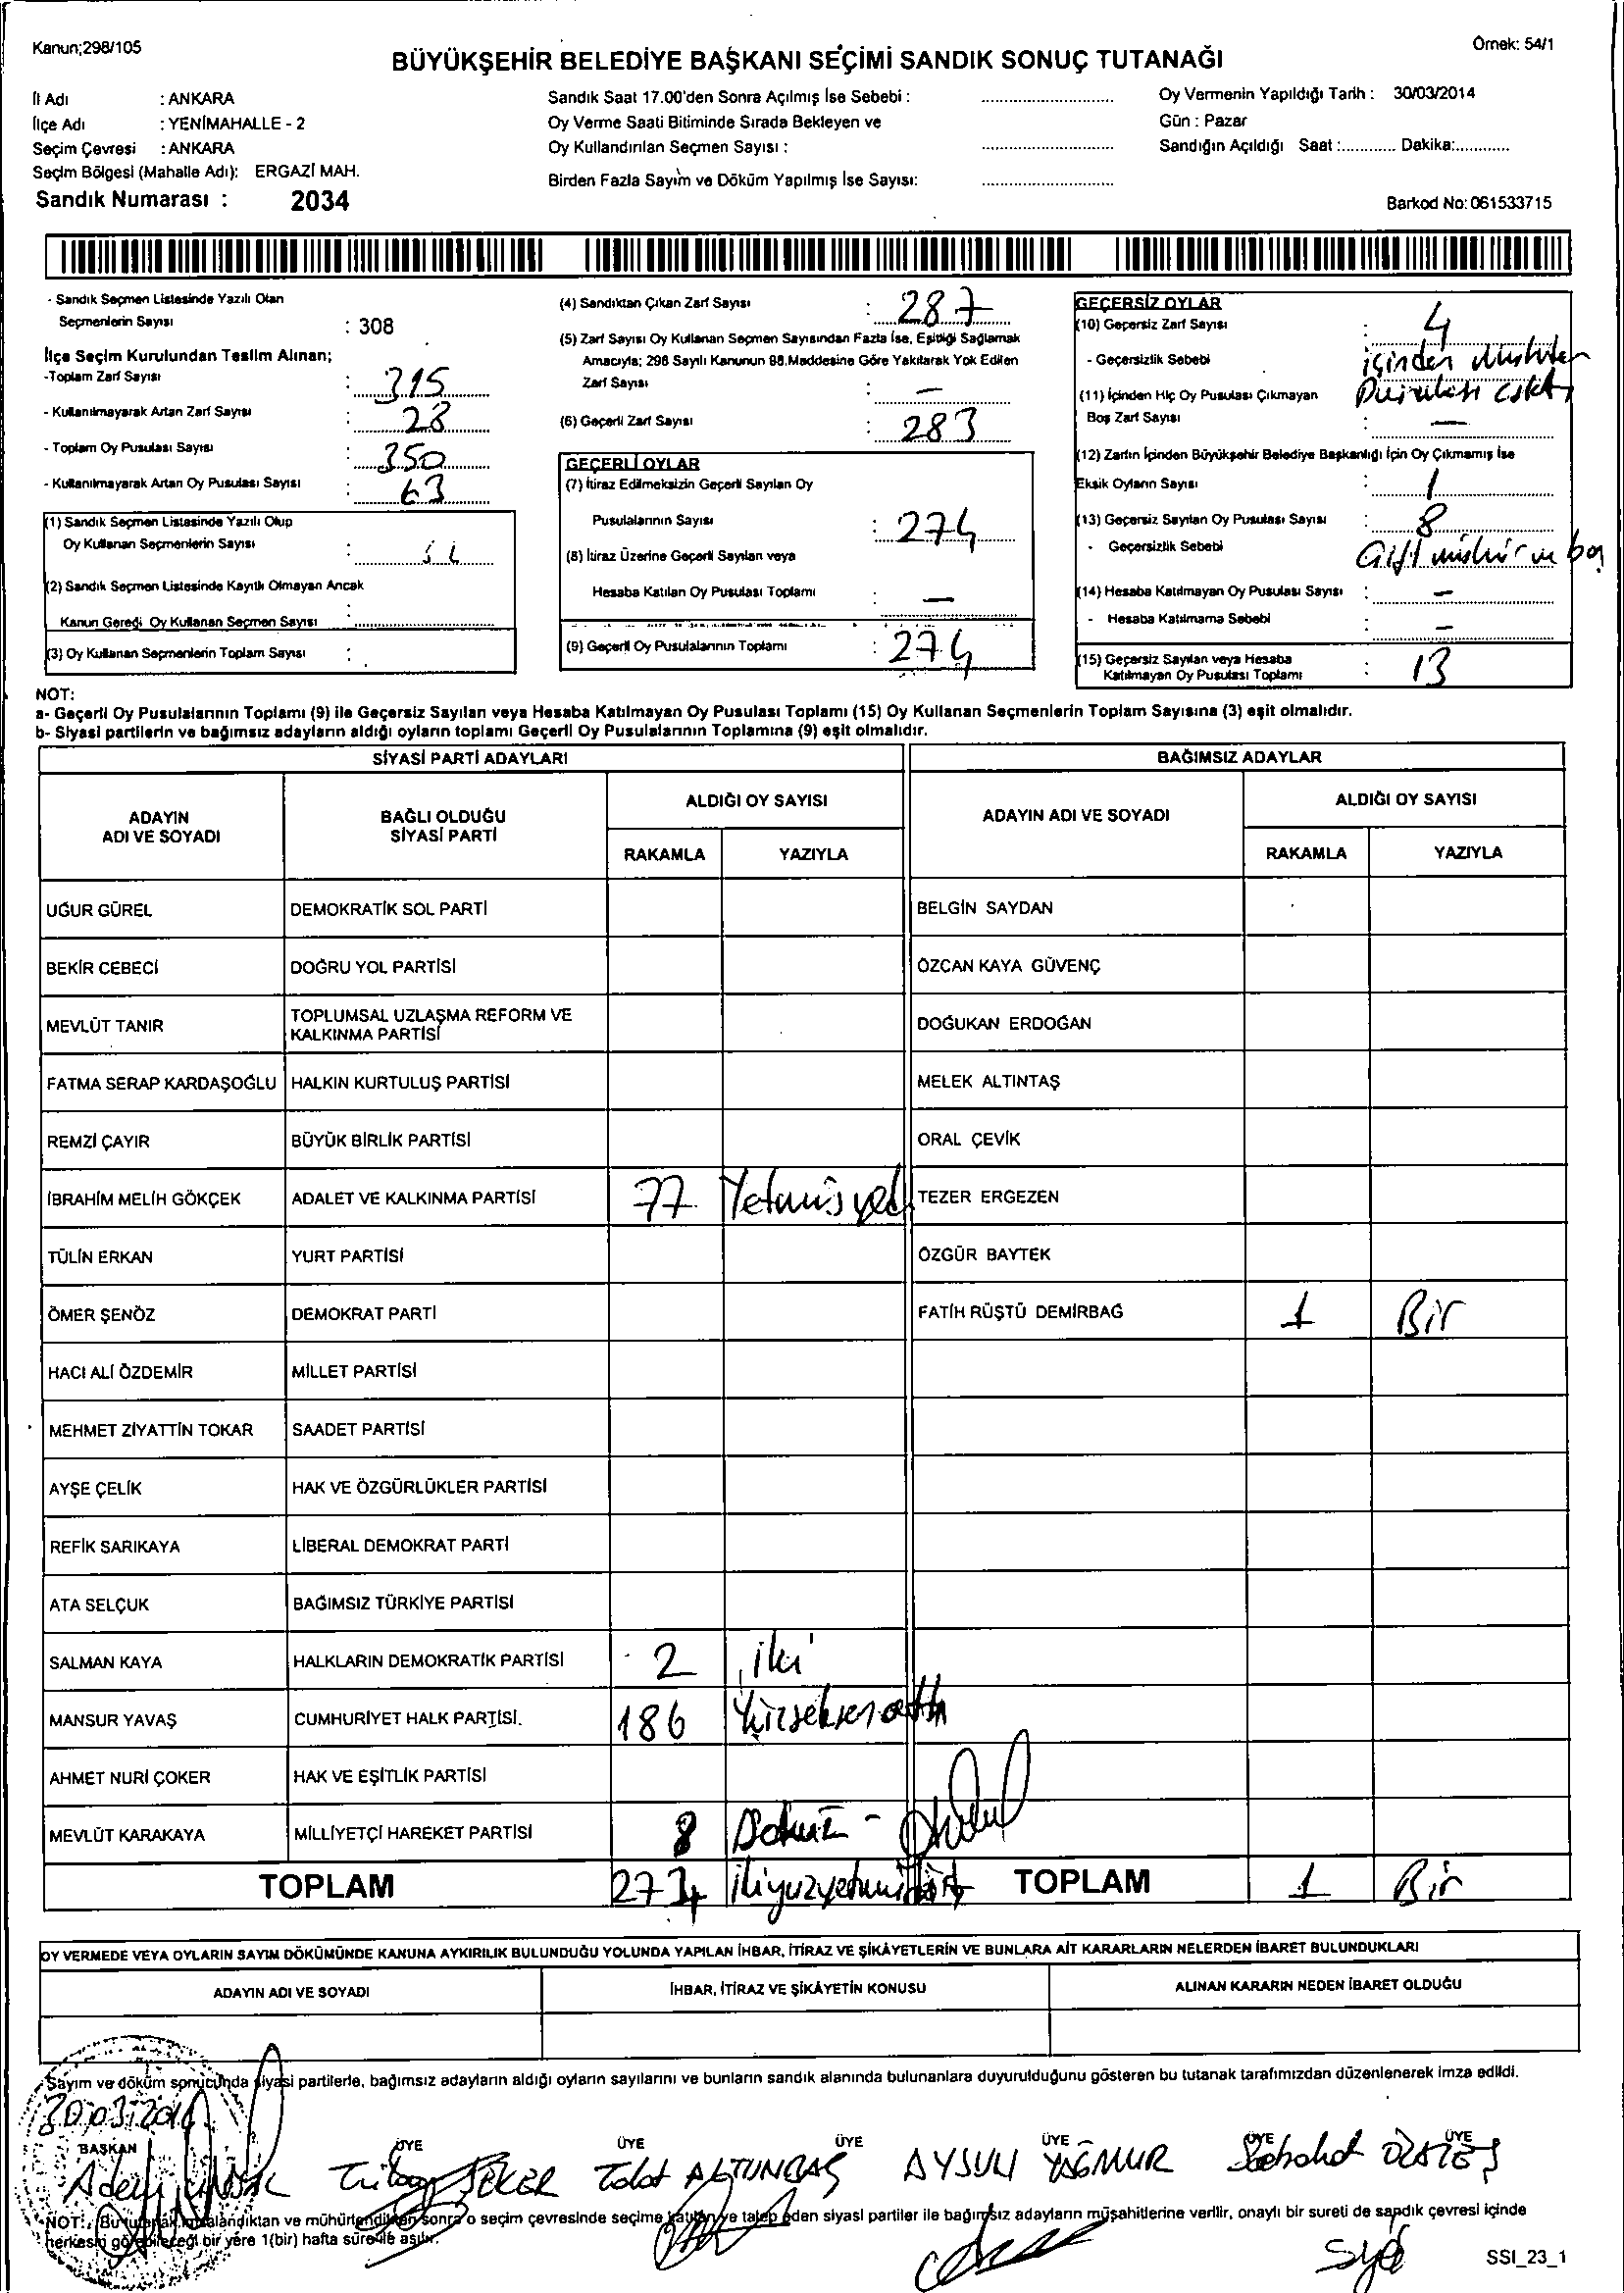 Kanun;298/105
Örnek: 54/1
BÜYÜKŞEHİR BELEDİYE BAŞKANI SEÇİMİ SANDIK SONUÇ TUTANAĞI
İl Adı : ANKARA
İlçe Adı : YENİMAHALLE - 2
Seçim Çevresi : ANKARA
Seçim Bölgesi (Mahalle Adı): ERGAZİ MAH.
Sandık Numarası : 2034
Sandık Saat 17.00'den Sonra Açılmış İse Sebebi :
Oy Verme Saati Bitiminde Sırada Bekleyen ve
Oy Kullandırılan Seçmen Sayısı :
Birden Fazla Sayım ve Döküm Yapılmış İse Sayısı:
Oy Vermenin Yapıldığı Tarih : 30/03/2014
Gün : Pazar
Sandığın Açıldığı Saat :............ Dakika:............
Barkod No: 061533715
- Sandık Seçmen Listesinde Yazılı Olan
Seçmenlerin Sayısı : 308
İlçe Seçim Kurulundan Teslim Alınan;
-Toplam Zarf Sayısı : 315
- Kullanılmayarak Artan Zarf Sayısı : 28
- Toplam Oy Pusulası Sayısı : 350
- Kullanılmayarak Artan Oy Pusulası Sayısı : 63
(1) Sandık Seçmen Listesinde Yazılı Olup
Oy Kullanan Seçmenlerin Sayısı :
(2) Sandık Seçmen Listesinde Kayıtlı Olmayan Ancak
Kanun Gereği Oy Kullanan Seçmen Sayısı :
(3) Oy Kullanan Seçmenlerin Toplam Sayısı :
(4) Sandıktan Çıkan Zarf Sayısı : 287
(5) Zarf Sayısı Oy Kullanan Seçmen Sayısından Fazla İse, Eşitliği Sağlamak
Amacıyla; 298 Sayılı Kanunun 98.Maddesine Göre Yakılarak Yok Edilen
Zarf Sayısı : —
(6) Geçerli Zarf Sayısı : 283
GEÇERLİ OYLAR
(7) İtiraz Edilmeksizin Geçerli Sayılan Oy
Pusulalarının Sayısı : 274
(8) İtiraz Üzerine Geçerli Sayılan veya
Hesaba Katılan Oy Pusulası Toplamı : —
(9) Geçerli Oy Pusulalarının Toplamı : 274
GEÇERSİZ OYLAR
(10) Geçersiz Zarf Sayısı : 4
- Geçersizlik Sebebi : içinden
(11) İçinden Hiç Oy Pusulası Çıkmayan
Boş Zarf Sayısı : —
(12) Zarfın İçinden Büyükşehir Belediye Başkanlığı İçin Oy Çıkmamış İse
Eksik Oyların Sayısı : 1
(13) Geçersiz Sayılan Oy Pusulası Sayısı : 8
- Geçersizlik Sebebi
(14) Hesaba Katılmayan Oy Pusulası Sayısı : —
- Hesaba Katılmama Sebebi : —
(15) Geçersiz Sayılan veya Hesaba
Katılmayan Oy Pusulası Toplamı : 13
NOT:
a- Geçerli Oy Pusulalarının Toplamı (9) ile Geçersiz Sayılan veya Hesaba Katılmayan Oy Pusulası Toplamı (15) Oy Kullanan Seçmenlerin Toplam Sayısına (3) eşit olmalıdır.
b- Siyasi partilerin ve bağımsız adayların aldığı oyların toplamı Geçerli Oy Pusulalarının Toplamına (9) eşit olmalıdır.
SİYASİ PARTİ ADAYLARI
BAĞIMSIZ ADAYLAR
ADAYIN
ADI VE SOYADI
BAĞLI OLDUĞU
SİYASİ PARTİ
ALDIĞI OY SAYISI
RAKAMLA YAZIYLA
ADAYIN ADI VE SOYADI
ALDIĞI OY SAYISI
RAKAMLA YAZIYLA
UĞUR GÜREL DEMOKRATİK SOL PARTİ BELGİN SAYDAN
BEKİR CEBECİ DOĞRU YOL PARTİSİ ÖZCAN KAYA GÜVENÇ
MEVLÜT TANIR TOPLUMSAL UZLAŞMA REFORM VE
KALKINMA PARTİSİ DOĞUKAN ERDOĞAN
FATMA SERAP KARDAŞOĞLU HALKIN KURTULUŞ PARTİSİ MELEK ALTINTAŞ
REMZİ ÇAYIR BÜYÜK BİRLİK PARTİSİ ORAL ÇEVİK
İBRAHİM MELİH GÖKÇEK ADALET VE KALKINMA PARTİSİ 77 Yetmişyedi TEZER ERGEZEN
TÜLİN ERKAN YURT PARTİSİ ÖZGÜR BAYTEK
ÖMER ŞENÖZ DEMOKRAT PARTİ FATİH RÜŞTÜ DEMİRBAĞ 1 Bir
HACI ALİ ÖZDEMİR MİLLET PARTİSİ
MEHMET ZİYATTİN TOKAR SAADET PARTİSİ
AYŞE ÇELİK HAK VE ÖZGÜRLÜKLER PARTİSİ
REFİK SARIKAYA LİBERAL DEMOKRAT PARTİ
ATA SELÇUK BAĞIMSIZ TÜRKİYE PARTİSİ
SALMAN KAYA HALKLARIN DEMOKRATİK PARTİSİ 2 iki
MANSUR YAVAŞ CUMHURİYET HALK PARTİSİ. 186 Yüzseksenaltı
AHMET NURİ ÇOKER HAK VE EŞİTLİK PARTİSİ
MEVLÜT KARAKAYA MİLLİYETÇİ HAREKET PARTİSİ 8 Dokuz -
TOPLAM TOPLAM 1 Bir
OY VERMEDE VEYA OYLARIN SAYIM DÖKÜMÜNDE KANUNA AYKIRILIK BULUNDUĞU YOLUNDA YAPILAN İHBAR, İTİRAZ VE ŞİKÂYETLERİN VE BUNLARA AİT KARARLARIN NELERDEN İBARET BULUNDUKLARI
ADAYIN ADI VE SOYADI İHBAR, İTİRAZ VE ŞİKÂYETİN KONUSU ALINAN KARARIN NEDEN İBARET OLDUĞU
Sayım ve döküm sonucunda siyasi partilerle, bağımsız adayların aldığı oyların sayılarını ve bunların sandık alanında bulunanlara duyurulduğunu gösteren bu tutanak tarafımızdan düzenlenerek imza edildi.
30.03.2014
BAŞKAN ÜYE ÜYE ÜYE ÜYE ÜYE ÜYE
Adem ŞEKER Talat ALTUNBAŞ AYSUN YAĞMUR Sebahat ÖZATEŞ
NOT: Bu tutanak imzalandıktan ve mühürlendikten sonra o seçim çevresinde seçime katılan ve talep eden siyasi partiler ile bağımsız adayların müşahitlerine verilir, onaylı bir sureti de sandık çevresi içinde
herkesin görebileceği bir yere 1(bir) hafta süre ile asılır.
SSI_23_1